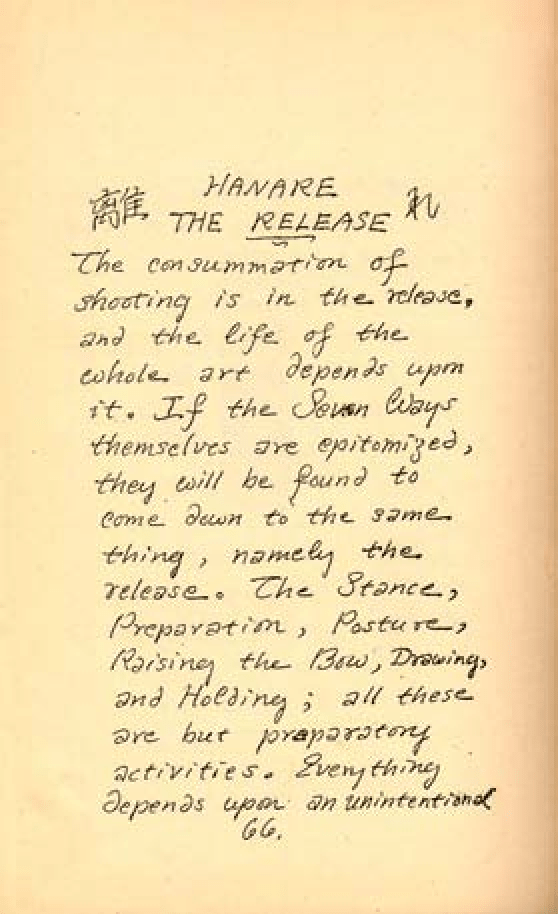 HANARE
離 THE RELEASE れ
The consummation of
shooting is in the release,
and the life of the
whole art depends upon
it. If the Seven Ways
themselves are epitomized,
they will be found to
come down to the same
thing, namely the
release. The Stance,
Preparation, Posture,
Raising the Bow, Drawing,
and Holding; all these
are but preparatory
activities. Everything
depends upon an unintentional
66.